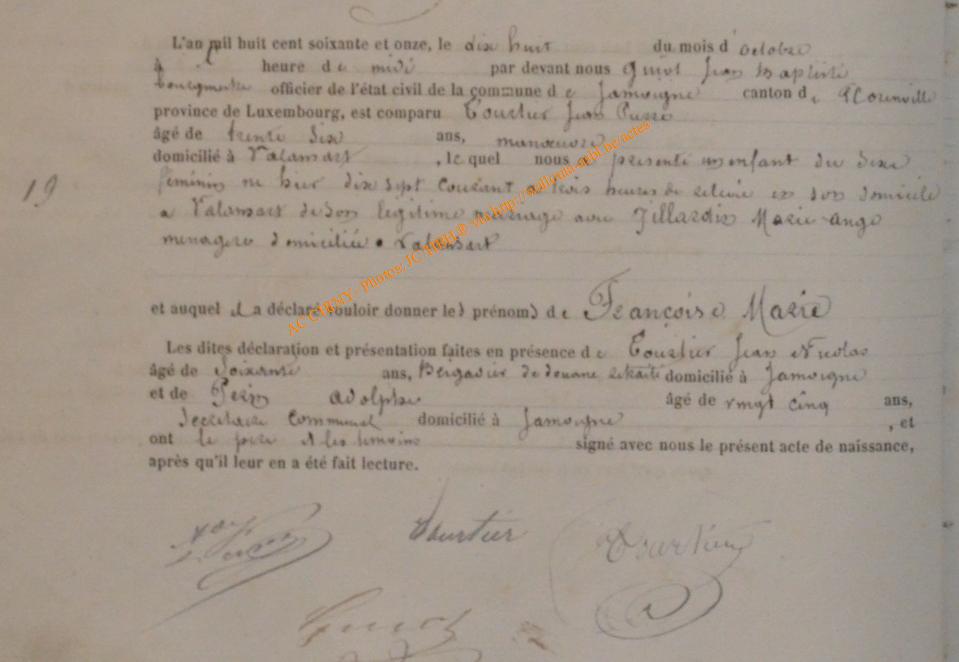 L'an mil huit cent soixante et onze, le dix huit du mois d' octobre
à heure de midi par devant nous Guiot Jean Baptiste
bourgmestre officier de l'état civil de la commune de Jamoigne canton de Florenville
province de Luxembourg, est comparu Tourtier Jean Pierre
âgé de trente six ans, manoeuvre
domicilié à Valansart, lequel nous a présenté un enfant du sexe
féminin né hier dix sept courant a trois heures de relevée en son domicile
a Valansart de son légitime mariage avec Gillardin Marie Ange
menagere domiciliée a Valansart
19
et auquel il a déclaré vouloir donner les prénoms de Françoise Marie
Les dites déclaration et présentation faites en présence de Tourtier Jean Nicolas
âgé de soixante ans, Brigadier de douane retraité domicilié à Jamoigne
et de Perin Adolphe âgé de vingt cinq ans,
Secrétaire communal domicilié à Jamoigne, et
ont le père et les témoins signé avec nous le présent acte de naissance,
après qu'il leur en a été fait lecture.
Tourtier Tourtier
Guiot